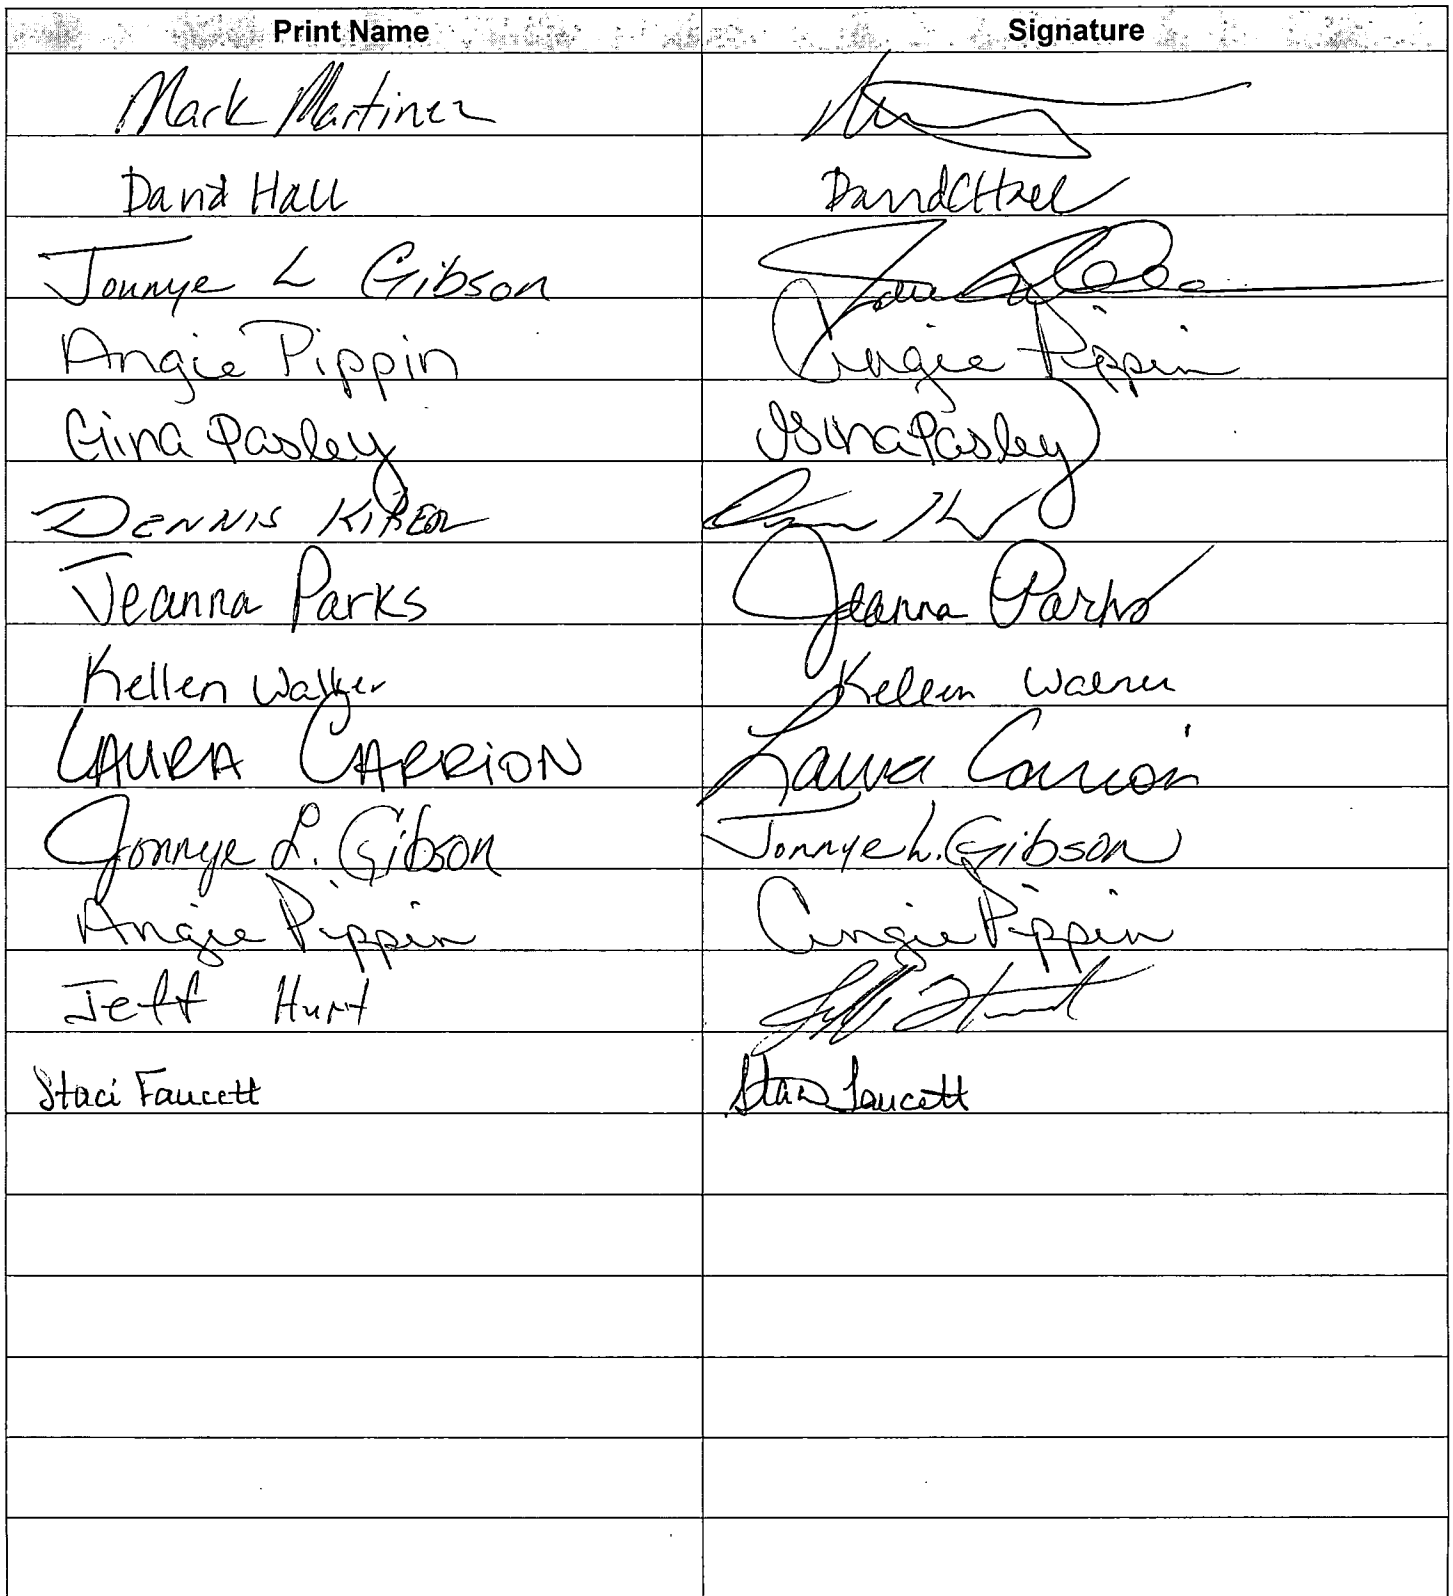 Print Name Signature
Mark Martinez
David Hall David C Hall
Jonnye L Gibson
Angie Pippin Angie Pippin
Gina Pasley Gina Pasley
DENNIS
Jeanna Parks Jeanna Parks
Kellen Walker Kellen Walker
LAURA CARRION Laura Carrion
Jonnye L. Gibson Jonnye L. Gibson
Angie Pippin Angie Pippin
Jeff Hurt Jeff Hurt
Staci Faucett Staci Faucett